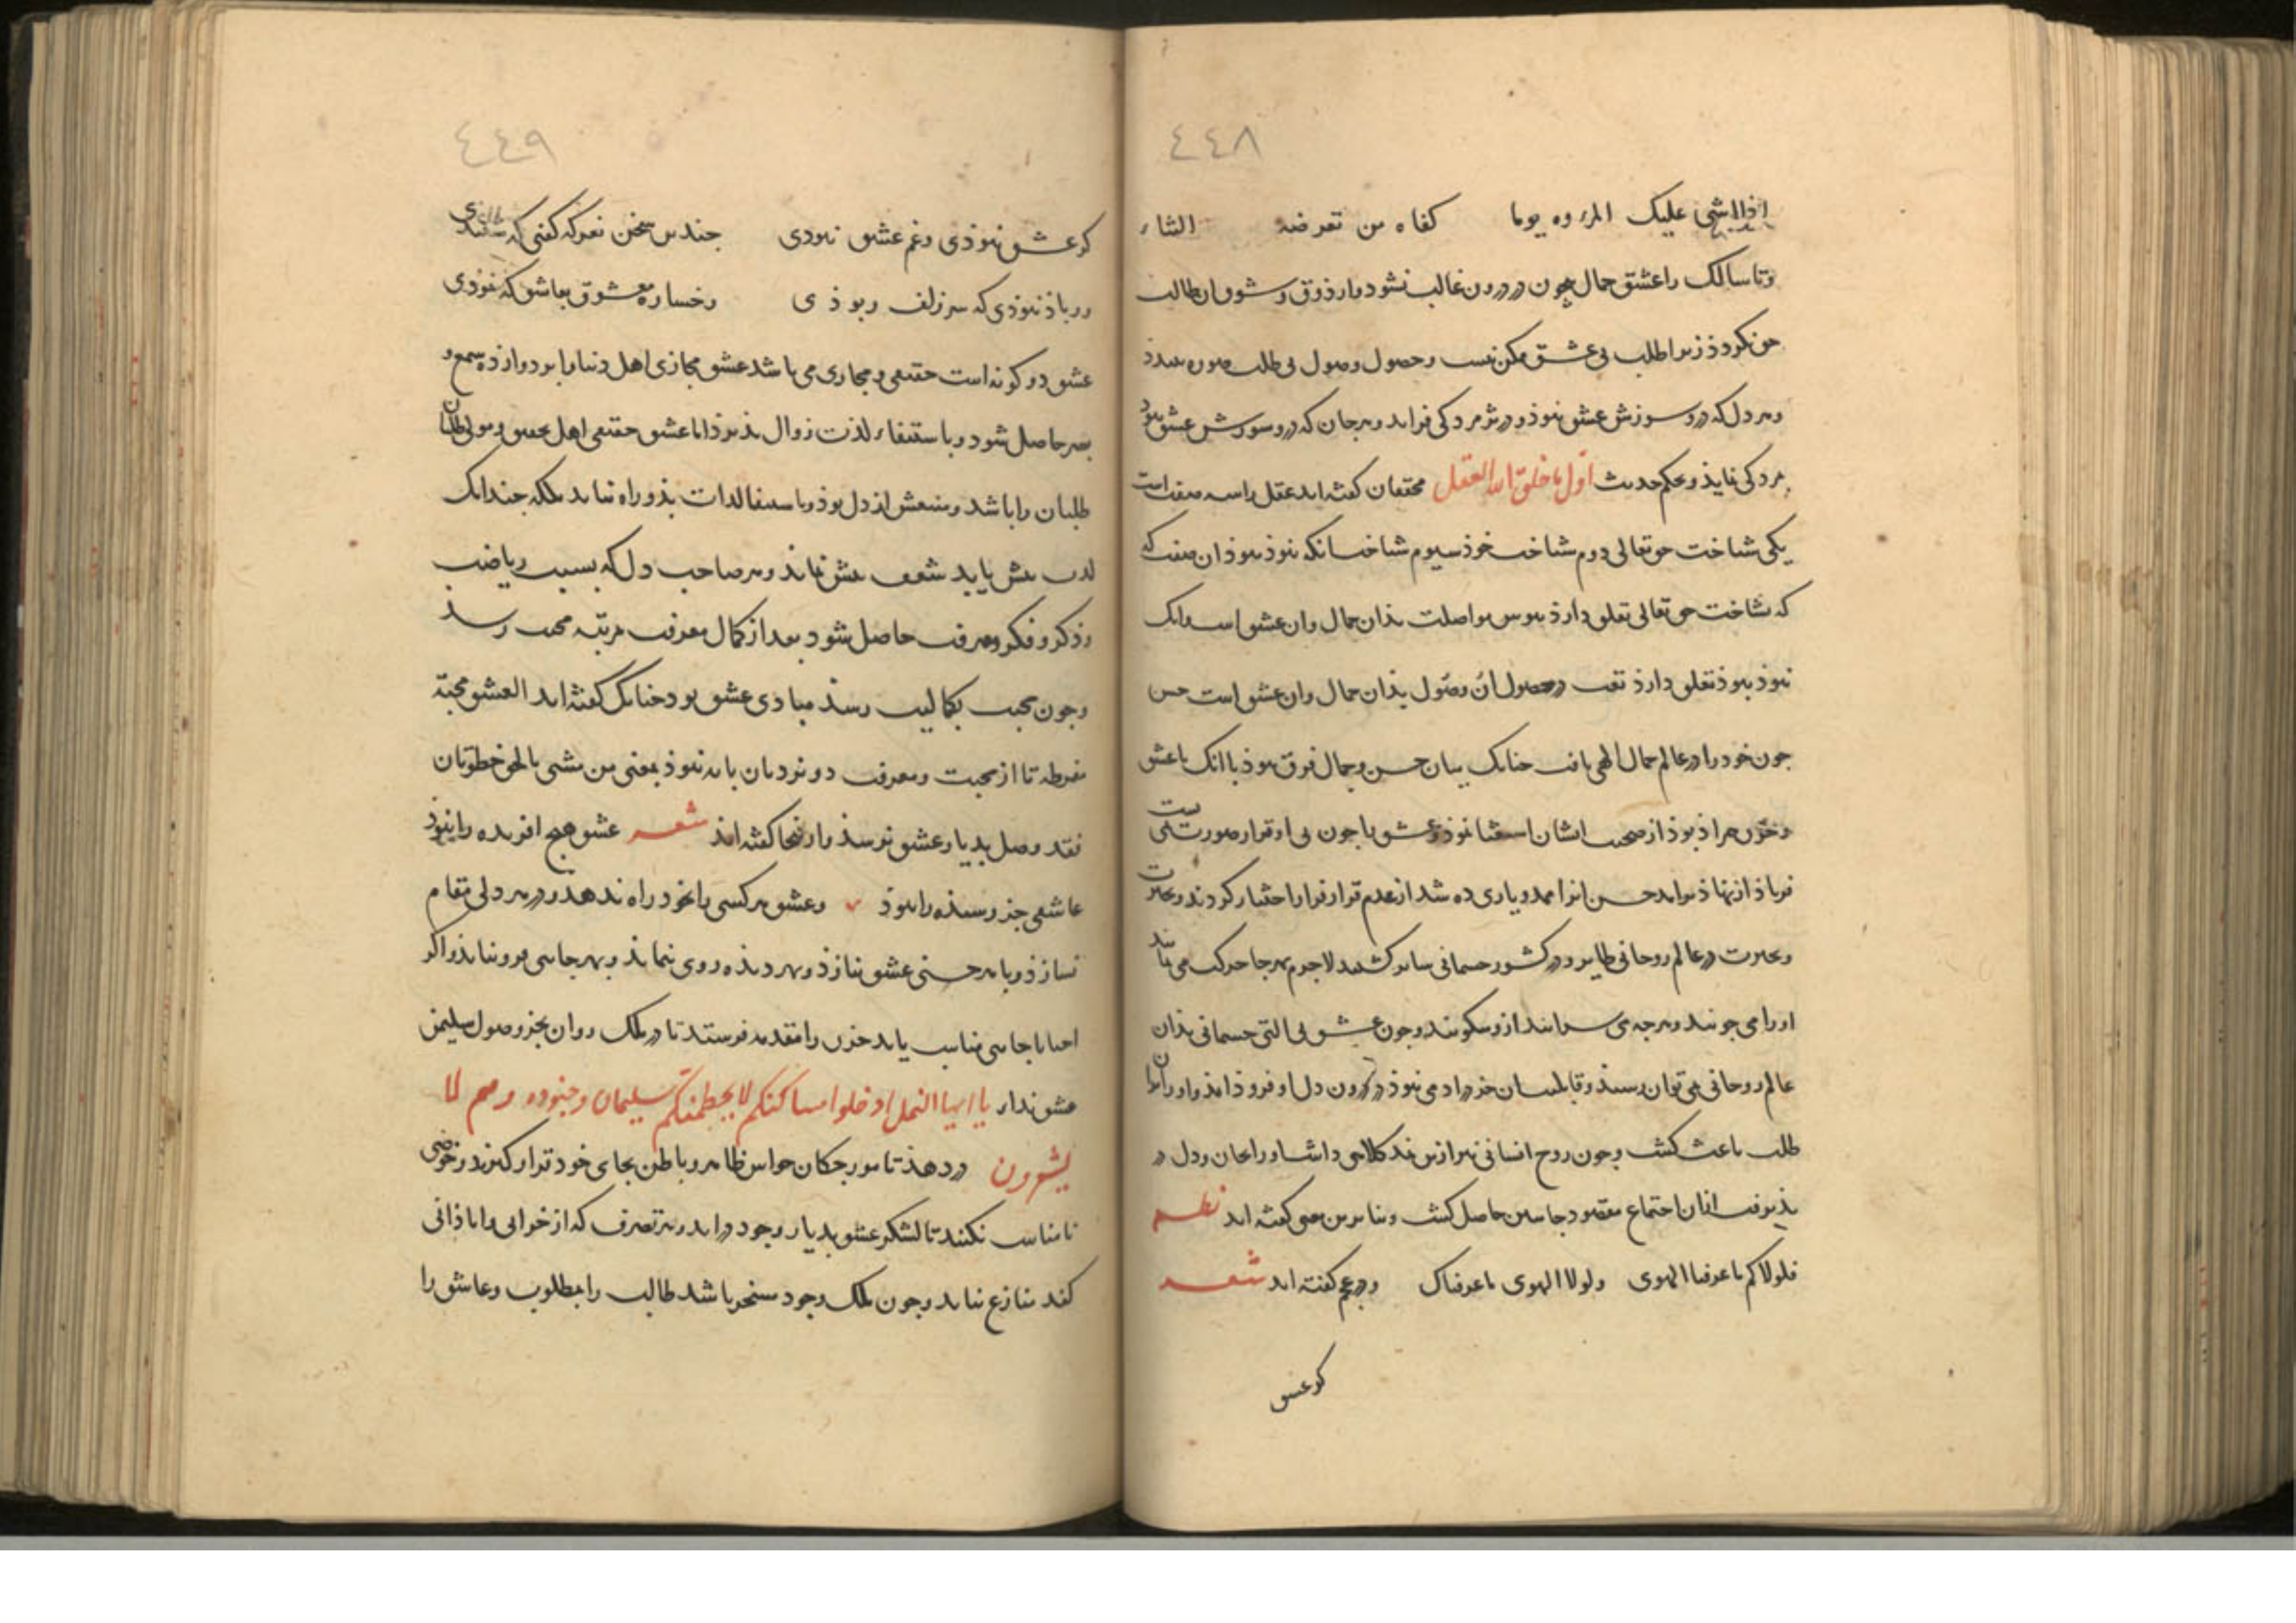 ٤٤٨
اذا اثنی علیک المرؤ یوما کفاه من تعرضه الثناء
وتا سالک را عشق جمال در درون غالب نشود و ذوق و شوق ان طالب
نکردذ زیرا طلب بی عشق ممکن نیست و حصول وصول بی طلب صورت نبندذ
وهر دل که درو سوزش عشق نبوذ و در پژمردکی فزاید و هر جان که درو سورش عشق نبود
مردکی نماید و بحکم حدیث اول ما خلق الله العقل محققان کفته اند عقل را سه صفت است
یکی شناخت حق تعالی دوم شناخت خوذ سیوم شناخت انکه نبوذ ببوذ ان صفت که
که شناخت حق تعالی تعلق دارذ هوس مواصلت بذان جمال وان عشق است وانک
نبوذ ببوذ تعلق دارذ تعب در حصول ان وصول بذان جمال وان عشق است حسن
جون خود را در عالم جمال الهی یافت جنانک میان حسن و جمال فرق نبوذ با انک با عشق
وحزن همزاذ بوذ از صحبت ایشان استغنا نموذ و عشق را جون بی او قرار صورت نمی بست
فریاذ از نهاذ برامد حسن انرا ممد و یاری ده شد از عدم قرار فرار اختیار کردند و بحیرت
و بحیرت در عالم روحانی طایر و در کشور جسمانی سایر کشتند لاجرم بهرجا حرکت می نمایند
اورا می جویند و هر جه می سرایند از و میکویند و جون عشق بی التی جسمانی بذان
عالم روحانی نمی توان رسید و قابلیت ان جز در ادمی نبوذ در درون دل او فروذ امذ و اورا بر ان
طلب باعث کشت و جون روح انسانی نیز ازین نمد کلاهی داشت اورا بجان و دل در
پذیرفت از ان اجتماع مقصود جانبین حاصل کشت و بنابرین معنی کفته اند نظم
فلولاکم ما عرفنا الهوی ولولا الهوی ما عرفناک ودر عجم کفته اند شعر
کر عشق
٤٤٩
کر عشق نبوذی و غم عشق نبودی جندین سخن نغز که کفتی که شنیدی
ور باذ نبوذی که سر زلف ربوذی رخساره معشوق بعاشق که نموذی
عشق دو کونه است حقیقی و مجازی می باشد عشق مجازی اهل دنیا را بود و از ذه سمع و
بصر حاصل شود و با ستیفاء لذت زوال پذیرذ اما عشق حقیقی اهل تحقیق و مولی طلبان
طلبان را باشد و منبعش از دل بوذ و با ستیفا لذات بذو راه نیابد بلکه جندانک
لذت بیش یابد شعف بیش نماید و هر صاحب دل که بسبب ریاضت
و ذکر و فکر و معرفت حاصل شود بعد از کمال معرفت مرتبه محبت رسد
و جون محبت بکمالیت رسذ مبادی عشق بود جنانک کفته اند العشق محبة
مفرطة تا از محبت و معرفت دو نردبان پایه نبوذ بمعنی من مشی بالحق خطوتان
فقد وصل بدیار عشق نرسذ و از اینجا کفته اند شعر عشق هیج افریده را نبوذ
عاشقی جز رسیذه را نبوذ و عشق هر کسی را بخود راه ندهد و در هر دلی مقام
نسازذ و با هر حسنی عشق نبازذ و بهر دیذه روی ننماید و بهر جایی فرو نیایذ و اکر
احیانا جایی مناسب یابد حزن را مقدمه فرستد تا در ملک روان بجز وصول سلیمان
عشق ندا در یا ایها النمل ادخلوا مساکنکم لا یحطمنکم سلیمان و جنوده و هم لا
یشعرون در دهذ تا مورجکان حواس ظاهر و باطن بجای خود قرار کیرند و خوضی
نامناسب نکنند تا لشکر عشق بدیار وجود در اید و هر تصرف که از خرابی و اباذانی
کند منازع نیابد و جون ملک وجود مسخر باشد طالب را بمطلوب و عاشق را